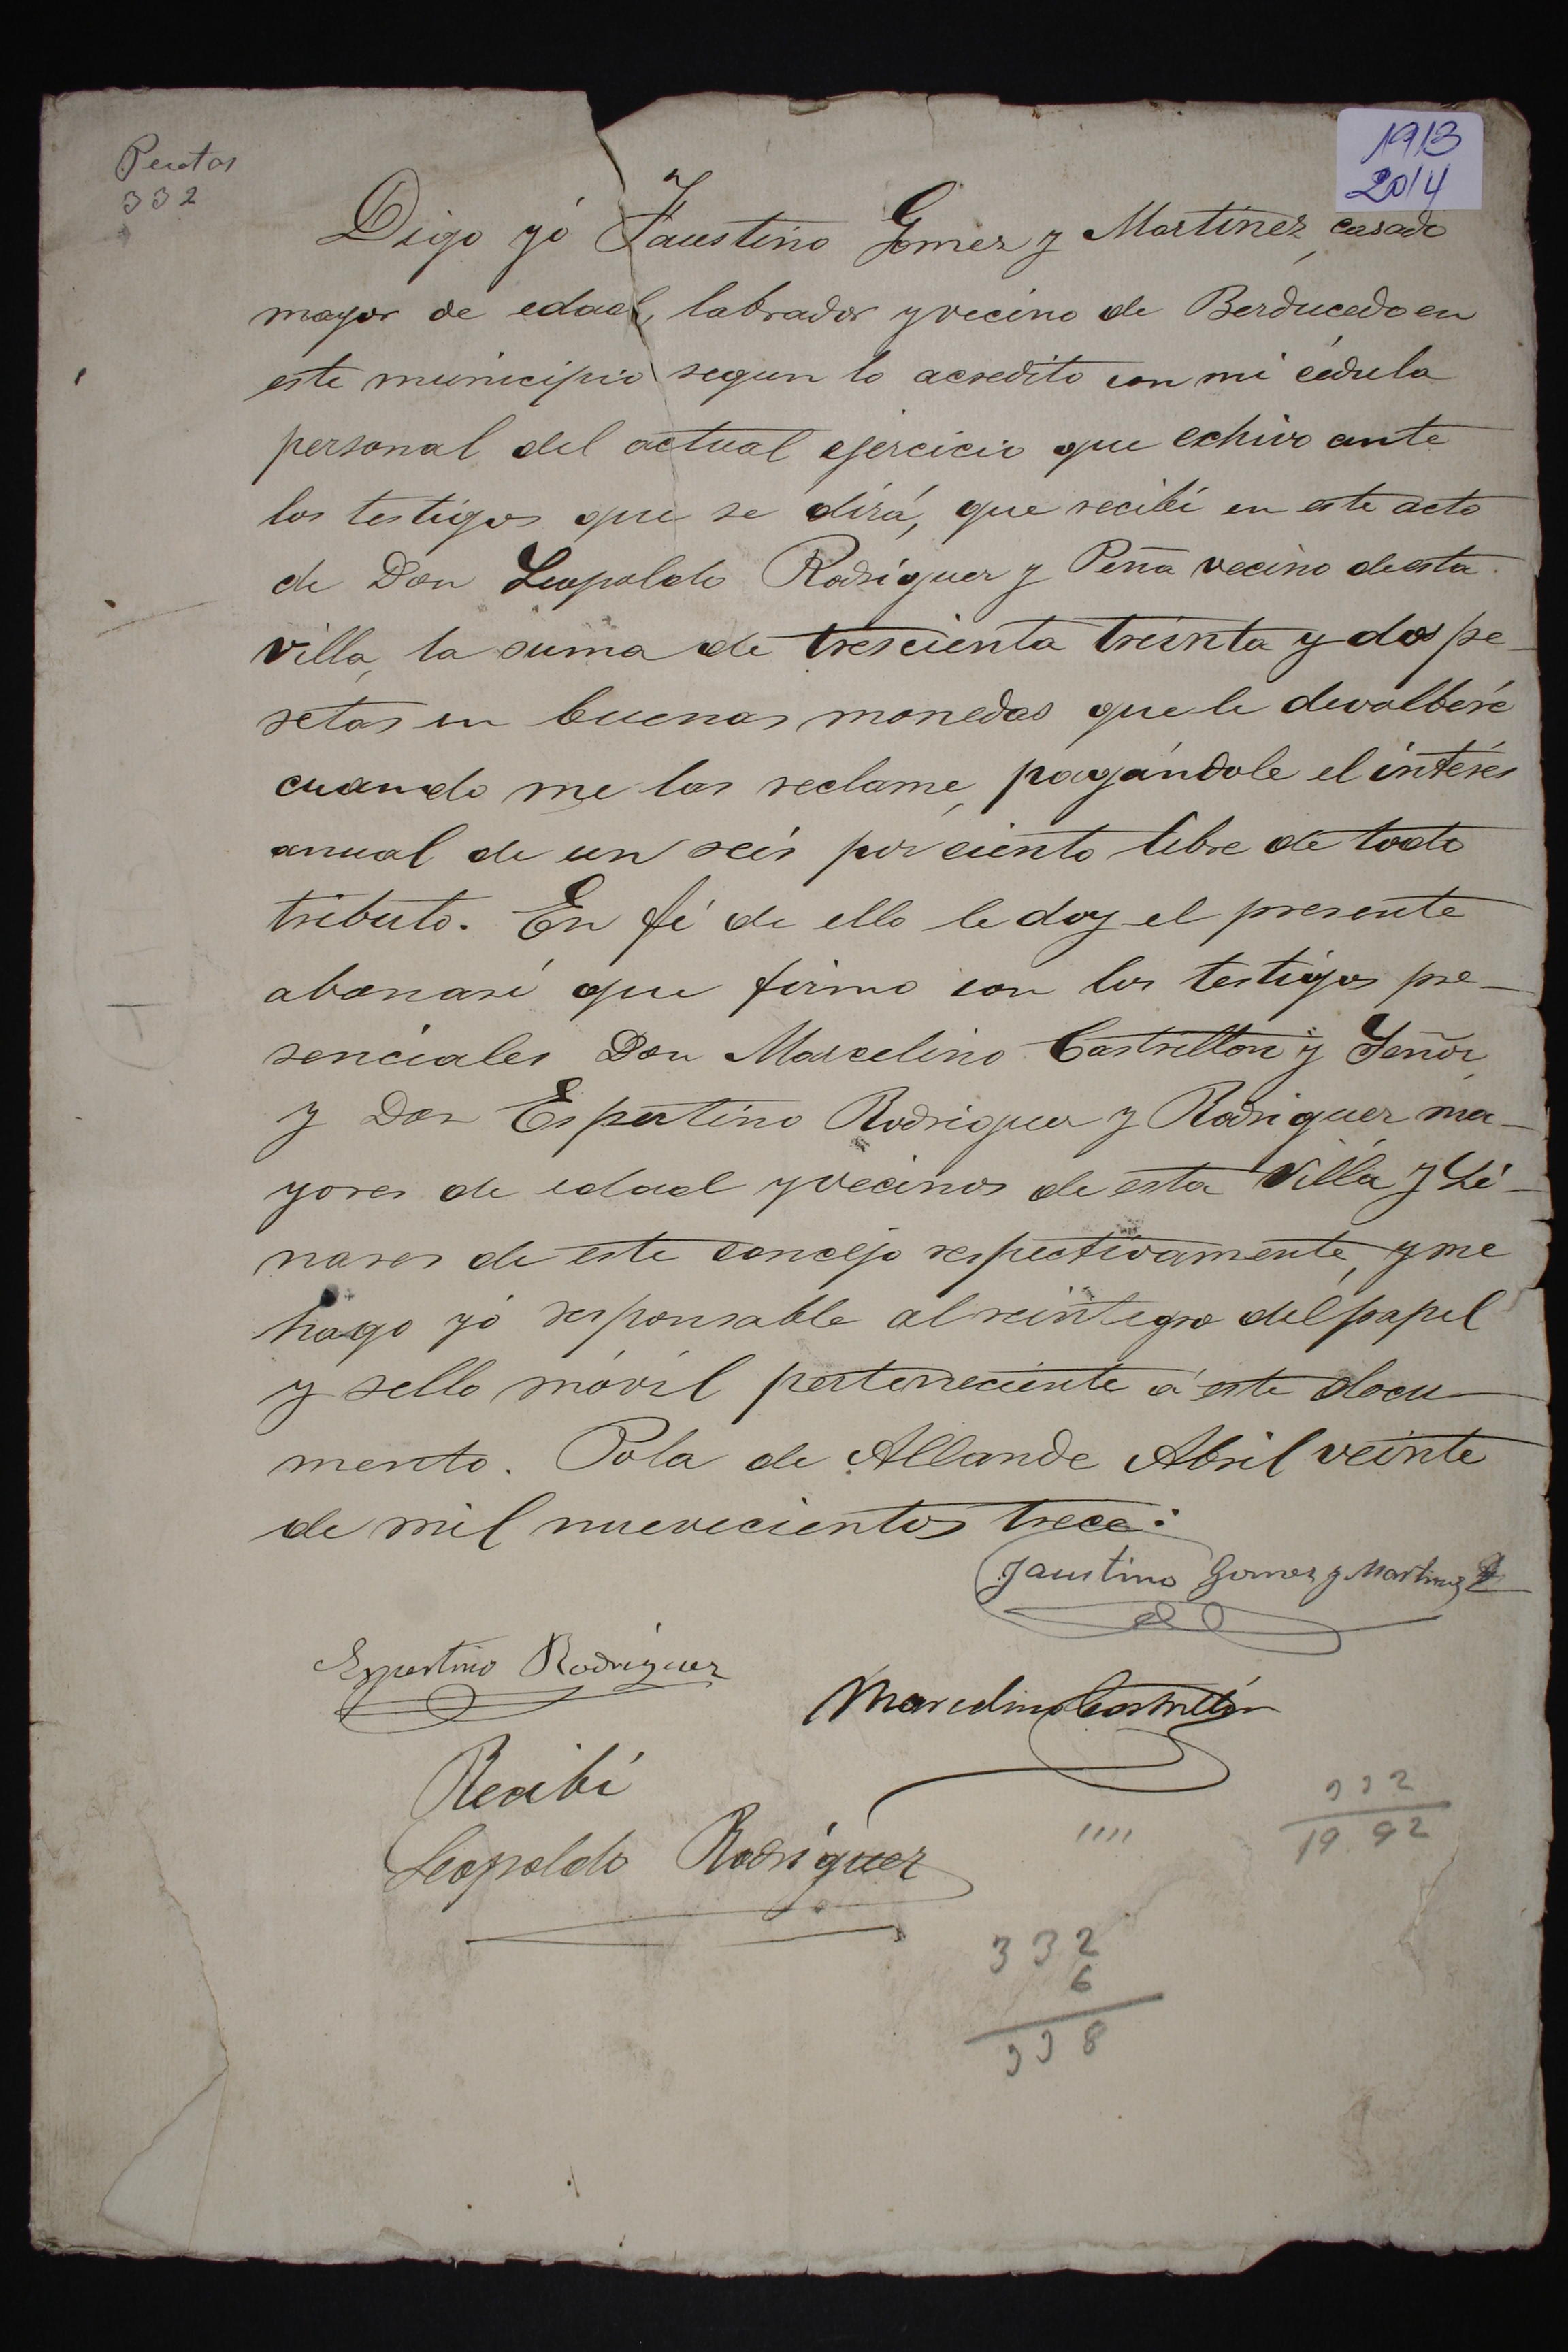 1913
2014
Pesetas
332
Digo yó Faustino Gomez y Martinez, casado
mayor de edad, labrador y vecino de Berducedo en
este municipio segun lo acredito con mi cédula
personal del actual ejercicio que echivo ante
los testigos que se dirá, que recibí en este acto
de Don Leopoldo Rodriguez y Peña vecino de esta
villa, la suma de trescienta treinta y dos pe-
setas en buenas monedas que le devolberé
cuando me las reclame, pagándole el interés
anual de un seis por ciento libre de todo
tributo. En fé de ello le doy el presente
abonaré que firmo con los testigos pre-
senciales Don Marcelino Castrillon y
y Don Espertino Rodriguez y Rodriguez ma-
yores de edad y vecinos de esta Villa y Li-
nares de este concejo respectivamente, y me
hago yó responsable al reintegro del papel
y sello móvil perteneciente á este docu-
mento. Pola de Allande Abril veinte
de mil nuevecientos trece:
Faustino Gomez y Martinez
Espertino Rodriguez
Marcelino Castrillón
Recibí
Leopoldo Rodriguez
332
19 92
332
6
338